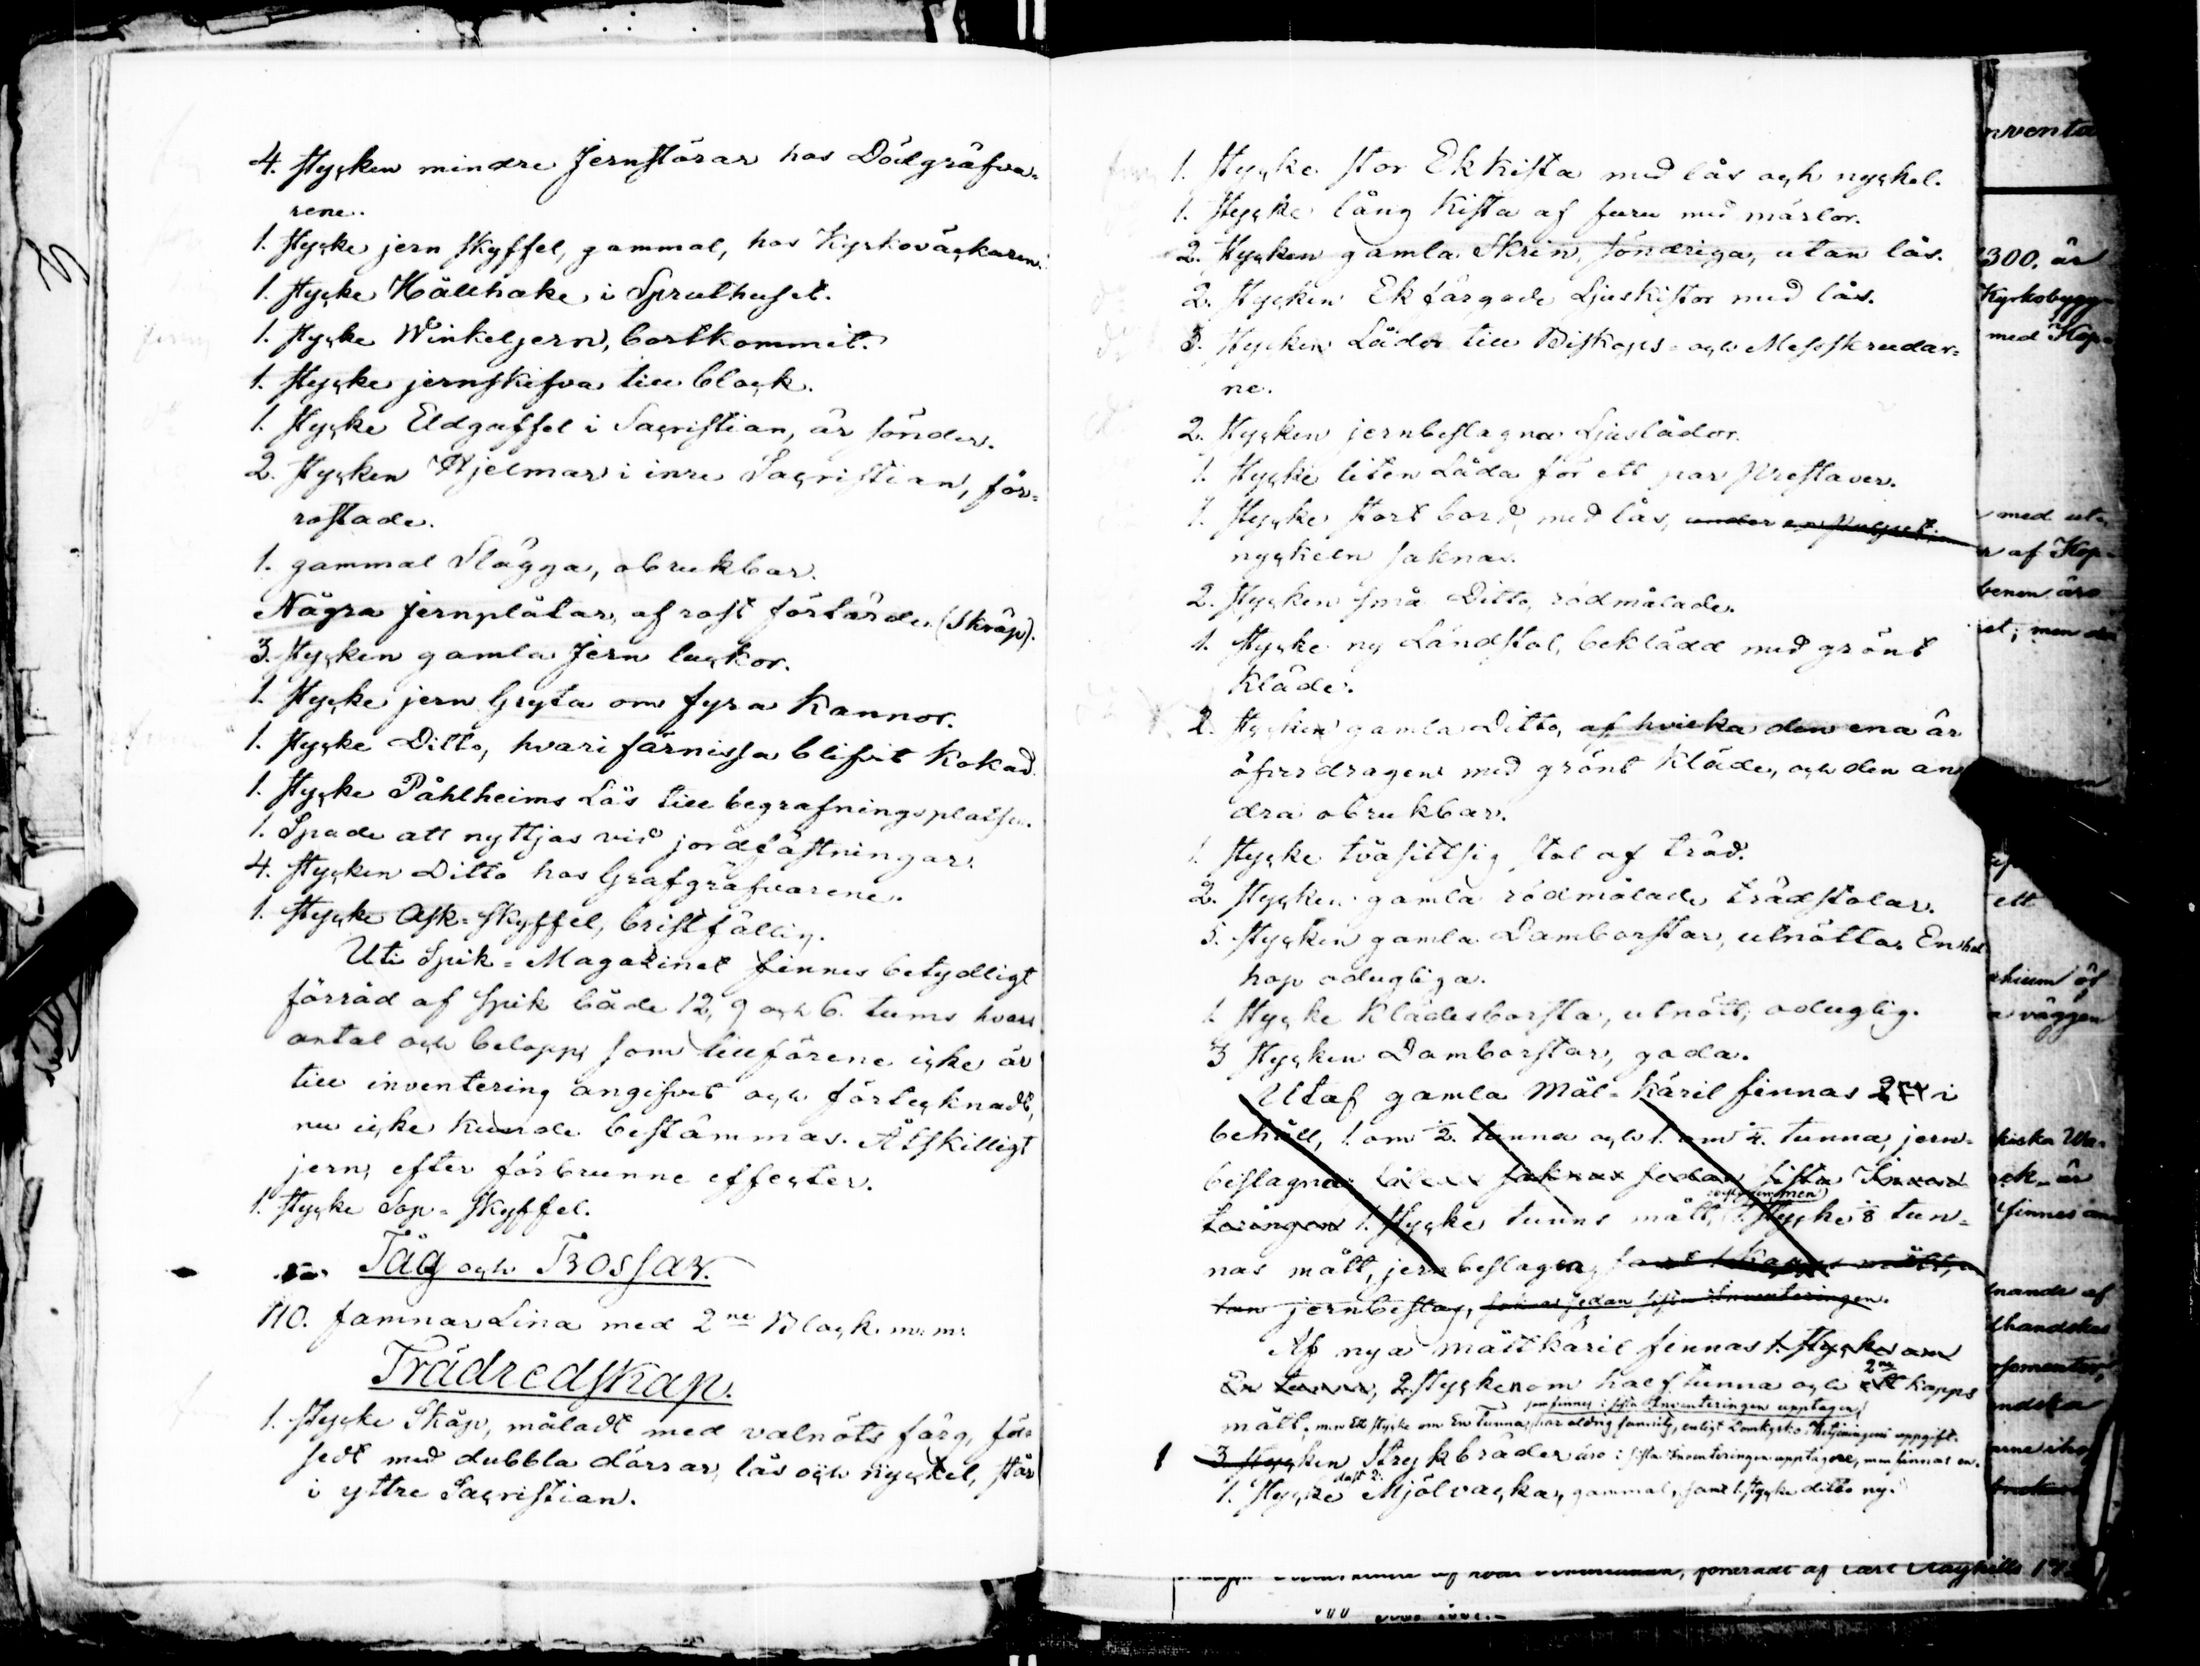 4. stycken mindre Jernstörar hos Dödgräfva-
rene.
1. stycke jern skyffel, gammal, hos Kyrkoväckaren.
1. stycke Hållhake i Spruthuset.
1. stycke Winkeljern, bortkommit.
1. stycke jernskifva till block.
1. stycke Eldgaffel i Sacristian, är sönder.
2. stycken Hjelmar i inre Sacristian, för-
rostade.
1. gammal Slägga, obrukbar.
Några jernplåtar, af rost förtärde. (Skräp).
3. stycken gamla Jern luckor.
1. stycke jern Gryta om fyra Kannor.
1. stycke Ditto, hvari färnissa blifvit Kokad.
1. stycke Påhlheims Lås till begrafningsplatsen.
1. Spade att nyttjas vid jordfästningar.
4. stycken Ditto hos Grafgräfvarene.
1. stycke Ask-skyffel, bristfällig.
Uti Spik-Magazinet finnes betydligt
förråd af spik både 12, 9 och 6. tums hvars
antal och belopp, som tillförene icke är
till inventering angifvet och förtecknadt,
nu icke kunde bestämmas. Åtskilligt
jern, efter förbrunne effecter.
1. stycke Sop-skyffel.
Tåg och Trossar.
110. famnar Lina med 2ne Block m: m:
Trädredskap.
1. stycke Skåp, måladt med valnöts färg, för-
sedt med dubbla dörrar, lås och nyckel, står
i yttre Sacristian.
1. stycke stor Ek Kista med lås och nyckel.
1. stycke lång Kista af furu med märlor.
2. stycken gamla Skrin, söndriga, utan lås.
2. stycken Ek färgade Ljuskistor med lås.
3. stycken Lådor till Biskops- och Messskrudar-
ne.
2. stycken jernbeslagna Ljuslådor.
1. stycke liten Låda för ett par Prestaver.
1. stycke stort bord, med lås, under en
nyckeln saknas.
2. stycken små Ditto, rödmålade.
1. stycke ny Ländstol, beklädd med grönt
Kläde.
2. stycken gamla Ditto, af hvilka den ena är
öfverdragen med grönt Kläde, och den an
dra obrukbar.
1. stycke tvåsittsig stol af träd.
2. stycken gamla rödmålade trädstolar.
5. stycken gamla Damborstar, utnötta, En hel
hop odugliga.
1. stycke Klädesborsta, utnött, oduglig.
3 stycken Damborstar, goda.
Utaf gamla Mål-Käril finnas i
behåll, 1. om ½. tunna och 1. om ¼. tunna, jern-
beslagna saknas sedan sista Inven
teringen 1. stycke tunns mått, stycke ⅛ tun-
nas mått, jernbeslagen, samt 1 Kapps mått, u
tan jernbeslag, sedan sista Inventeringen.
Af nya mått käril finnas 1. stycke om
En tunna, 2 stycken om half tunna och 2ne Kapps
som finnes i sista Inventeringen upptagen,
mått. men Ett stycke om En Tunna, har aldrig funnits, enligt Domkyrko-Betjeningens uppgift.
1 3 stycken Strykbräder äro i sista Inventeringen upptagne, men finnas en.
1. stycke Mjölvacka, gammal, samt 1. stycke ditto ny.
nventa
300. är
Kyrkobygg-
med Kop-
med ut-
af Kop-
benen äro
et; men
ett
väggen
finnes
nande af